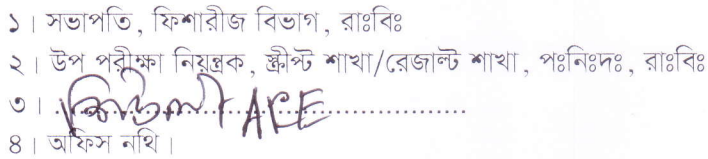 ১। সভাপতি, ফিশারীজ বিভাগ, রাঃবিঃ
২। উপ পরীক্ষা নিয়ন্ত্রক, স্ক্রীপ্ট শাখা/রেজাল্ট শাখা, পঃনিঃদঃ, রাঃবিঃ
৩। ............ ACE ............
৪। অফিস নথি।